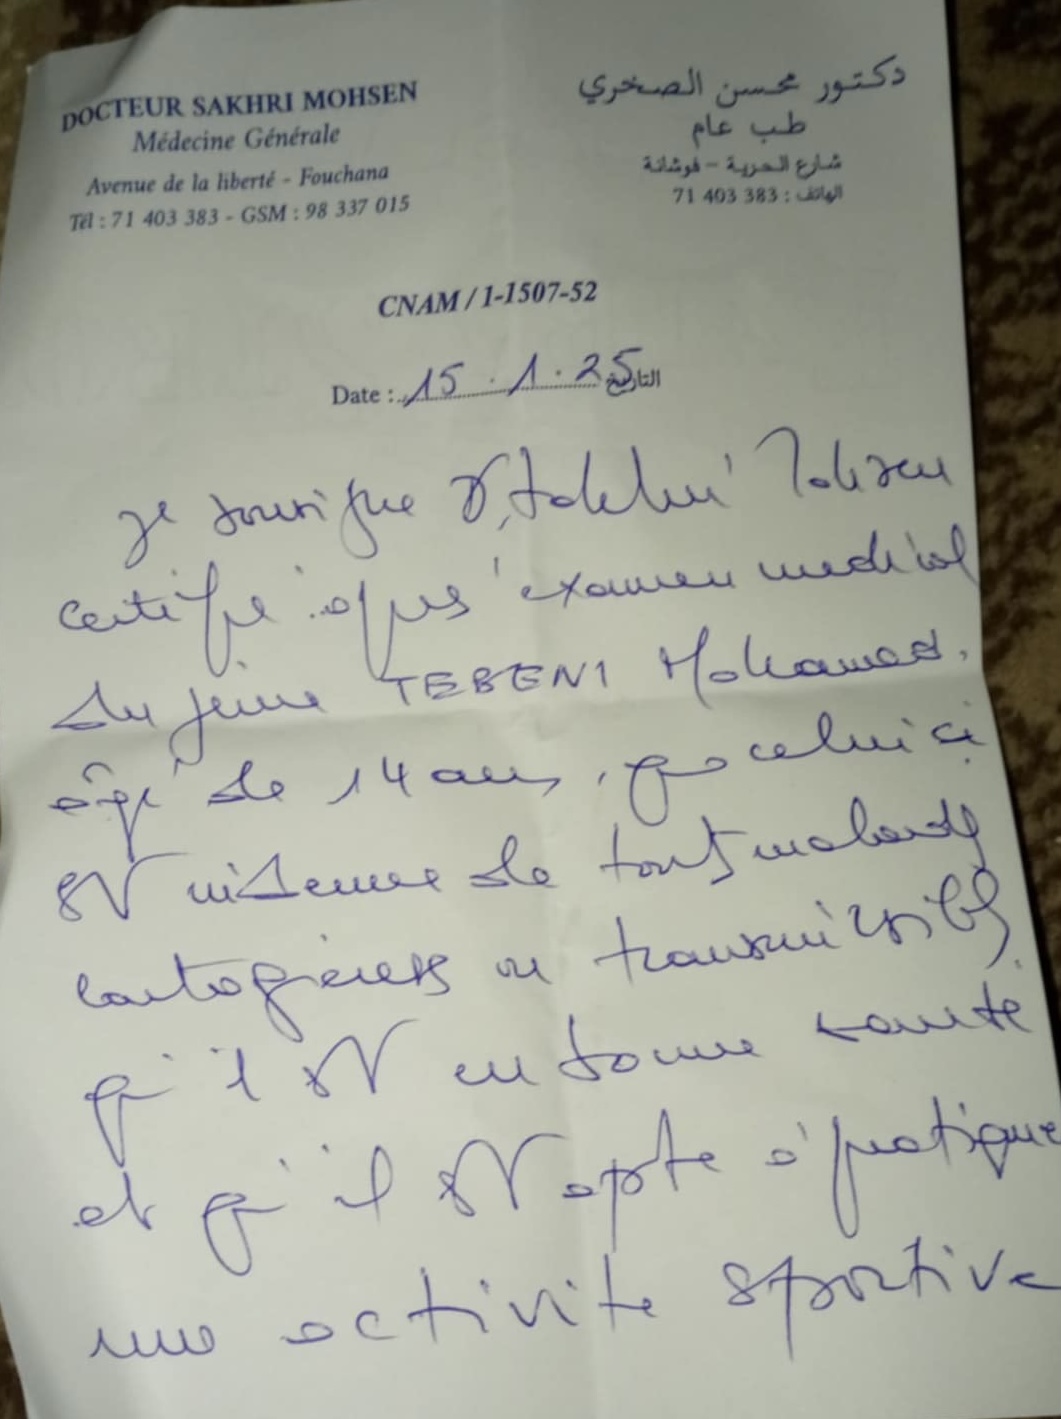 DOCTEUR SAKHRI MOHSEN
Médecine Générale
Avenue de la liberté - Fouchana
Tél : 71 403 383 - GSM : 98 337 015
دكتور محسن الصخري
طب عام
شارع الحرية - فوشانة
الهاتف : 71 403 383
CNAM / 1-1507-52
Date : 15 . 1 . 25 التاريخ
Je soussigné Dr Sakhri Mohsen
certifie après examen medical
du jeune TEBENI Mohamed.
âgé de 14 ans, que celui ci
est indemne de toutes maladies
contagieuses ou transmissibles.
qu'il est en bonne santé
et qu'il est apte à pratiquer
une activité sportive